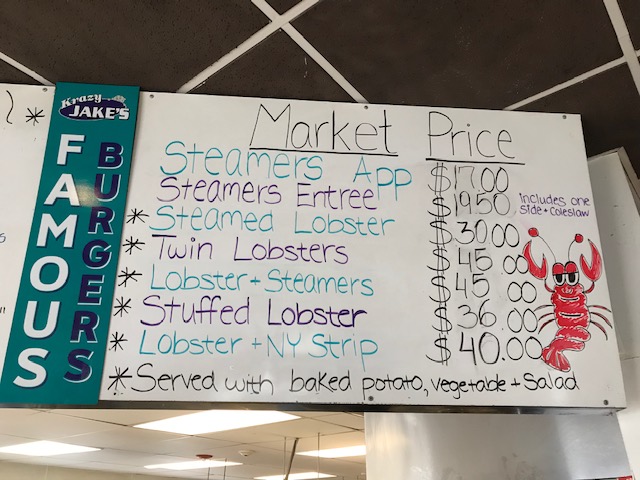 Krazy
JAKE'S
FAMOUS
BURGERS
Market Price
Steamers App $17.00
Steamers Entree $19.50 includes one
side + Coleslaw
* Steamed Lobster $30.00
* Twin Lobsters $45.00
* Lobster + Steamers $45.00
* Stuffed Lobster $36.00
* Lobster + NY Strip $40.00
* Served with baked potato, vegetable + Salad